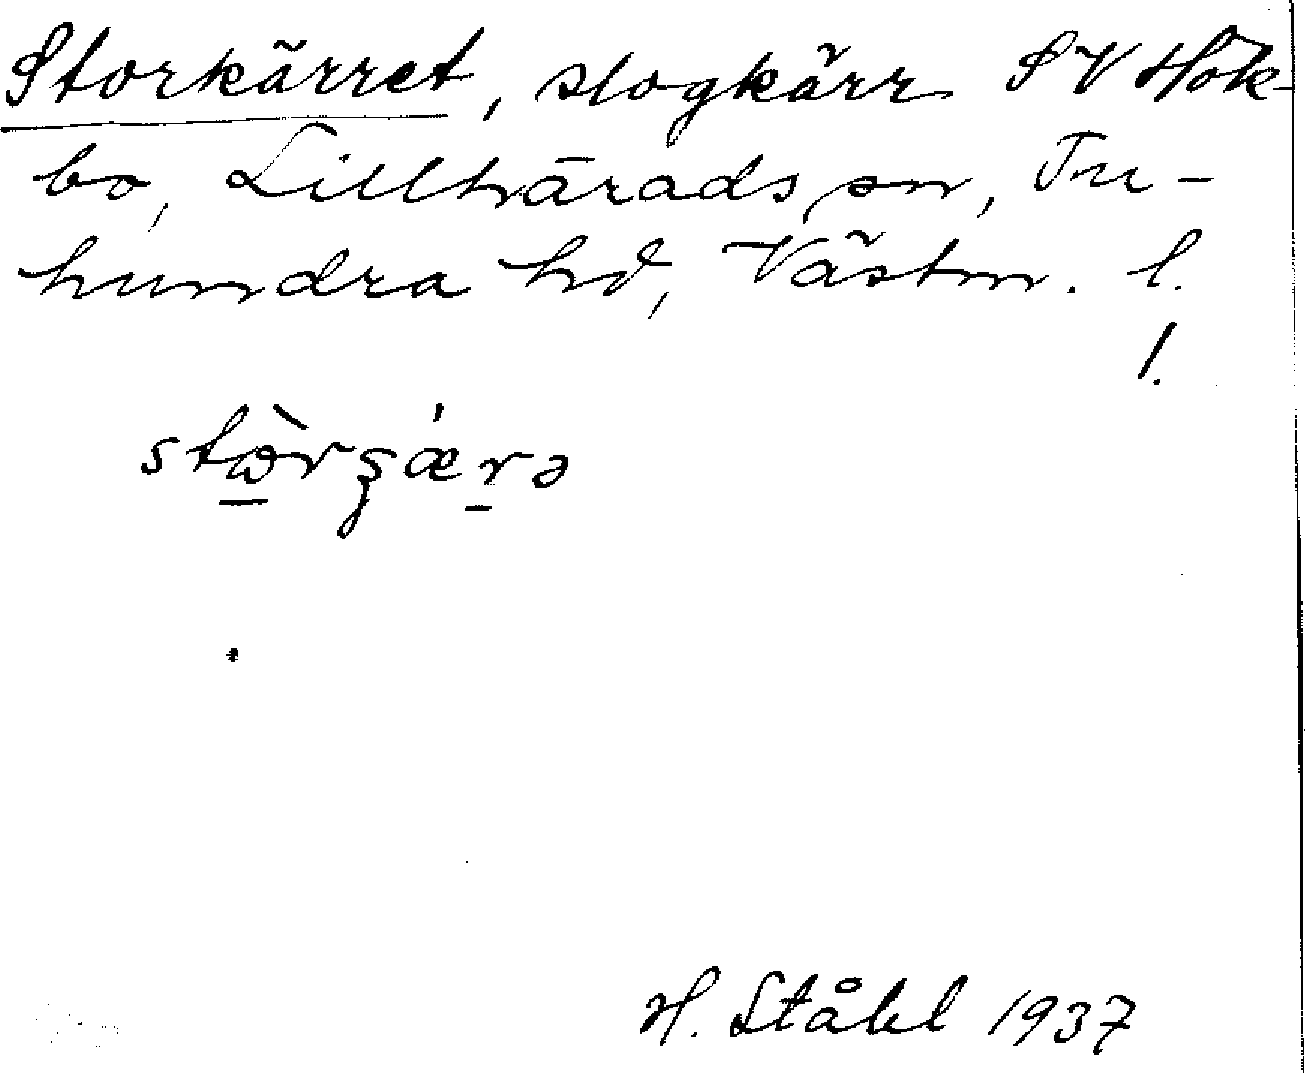 Storkärret, slogkärr SV Hök-
bo, Lillhärads sn, Tu-
hundra hd, Västm. l.
!
H. Ståhl 1937